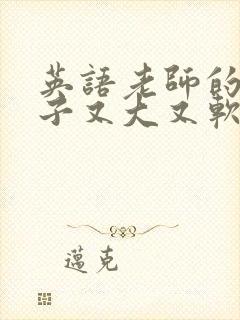 英語老師的
子又大又軟
邁克